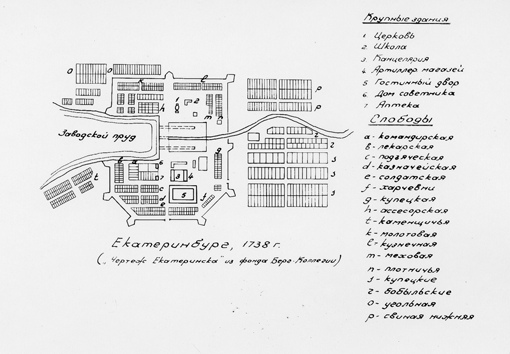 Крупные здания
1 Церковь
2 Школа
3 Канцелярия
4 Артиллер. магазей
5 Гостинный двор
6 Дом советника
7 Аптека
Слободы
a - командирская
b - лекарская
c - подьяческая
d - казначейская
e - солдатская
f - харчевни
g - купецкая
h - ассесорская
t - каменщичья
k - молотовая
l - кузнечная
m - меховая
n - плотничья
s - купецкие
z - бобыльские
o - угольная
p - свиная нижняя
Заводской пруд
Екатеринбург, 1738 г.
(„Чертеж Екатеринска" из фонда Берг-Коллегии)